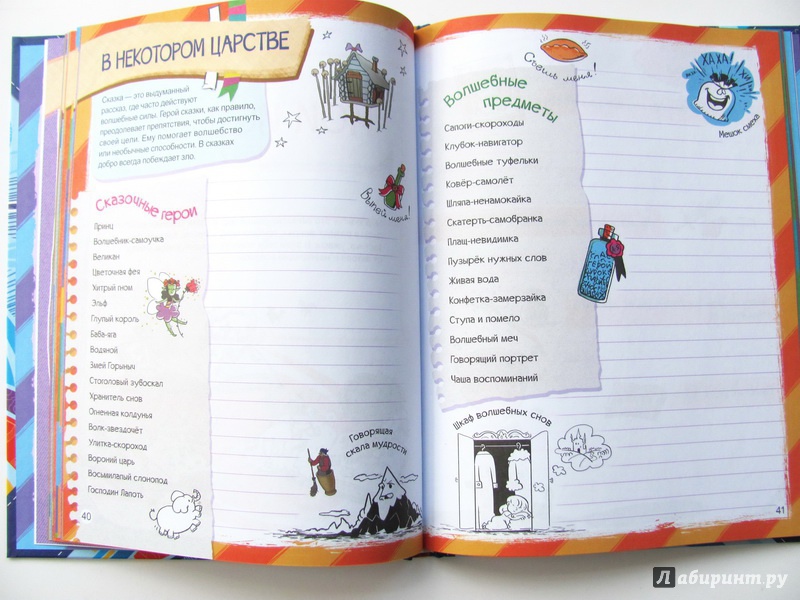 В НЕКОТОРОМ ЦАРСТВЕ
Сказка — это выдуманный
рассказ, где часто действуют
волшебные силы. Герой сказки, как правило,
преодолевает препятствия, чтобы достигнуть
своей цели. Ему помогает волшебство
или необычные способности. В сказках
добро всегда побеждает зло.
Выпей меня!
Сказочные герои
Принц
Волшебник-самоучка
Великан
Цветочная фея
Хитрый гном
Эльф
Глупый король
Баба-яга
Водяной
Змей Горыныч
Стоголовый зубоскал
Хранитель снов
Огненная колдунья
Волк-звездочёт
Улитка-скороход
Вороний царь
Восьмилапый слонопод
Господин Лапоть
Говорящая
скала мудрости
40
Съешь меня!
ХА ХА
ХИ
Мешок смеха
Волшебные
предметы
Сапоги-скороходы
Клубок-навигатор
Волшебные туфельки
Ковёр-самолёт
Шляпа-ненамокайка
Скатерть-самобранка
Плащ-невидимка
Пузырёк нужных слов
Живая вода
Конфетка-замерзайка
Ступа и помело
Волшебный меч
Говорящий портрет
Чаша воспоминаний
Шкаф волшебных снов
41
Лабиринт.ру